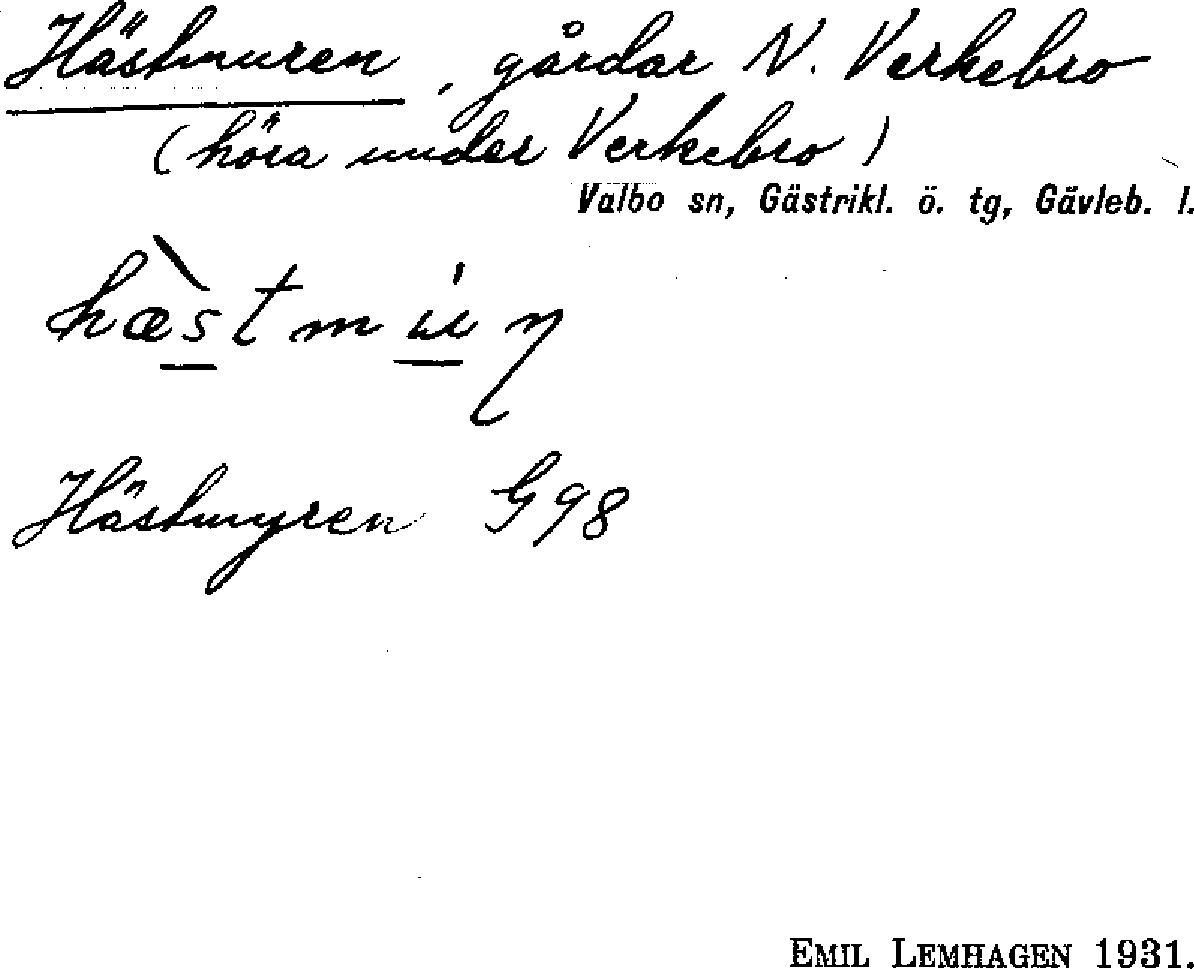 Hästmuren, gårdar N. Verkebro
(höra under Verkebro)
Valbo sn, Gästrikl. ö. tg, Gävleb. l.
hæ̀stmúη
Hästmyren G98
EMIL LEMHAGEN 1931.